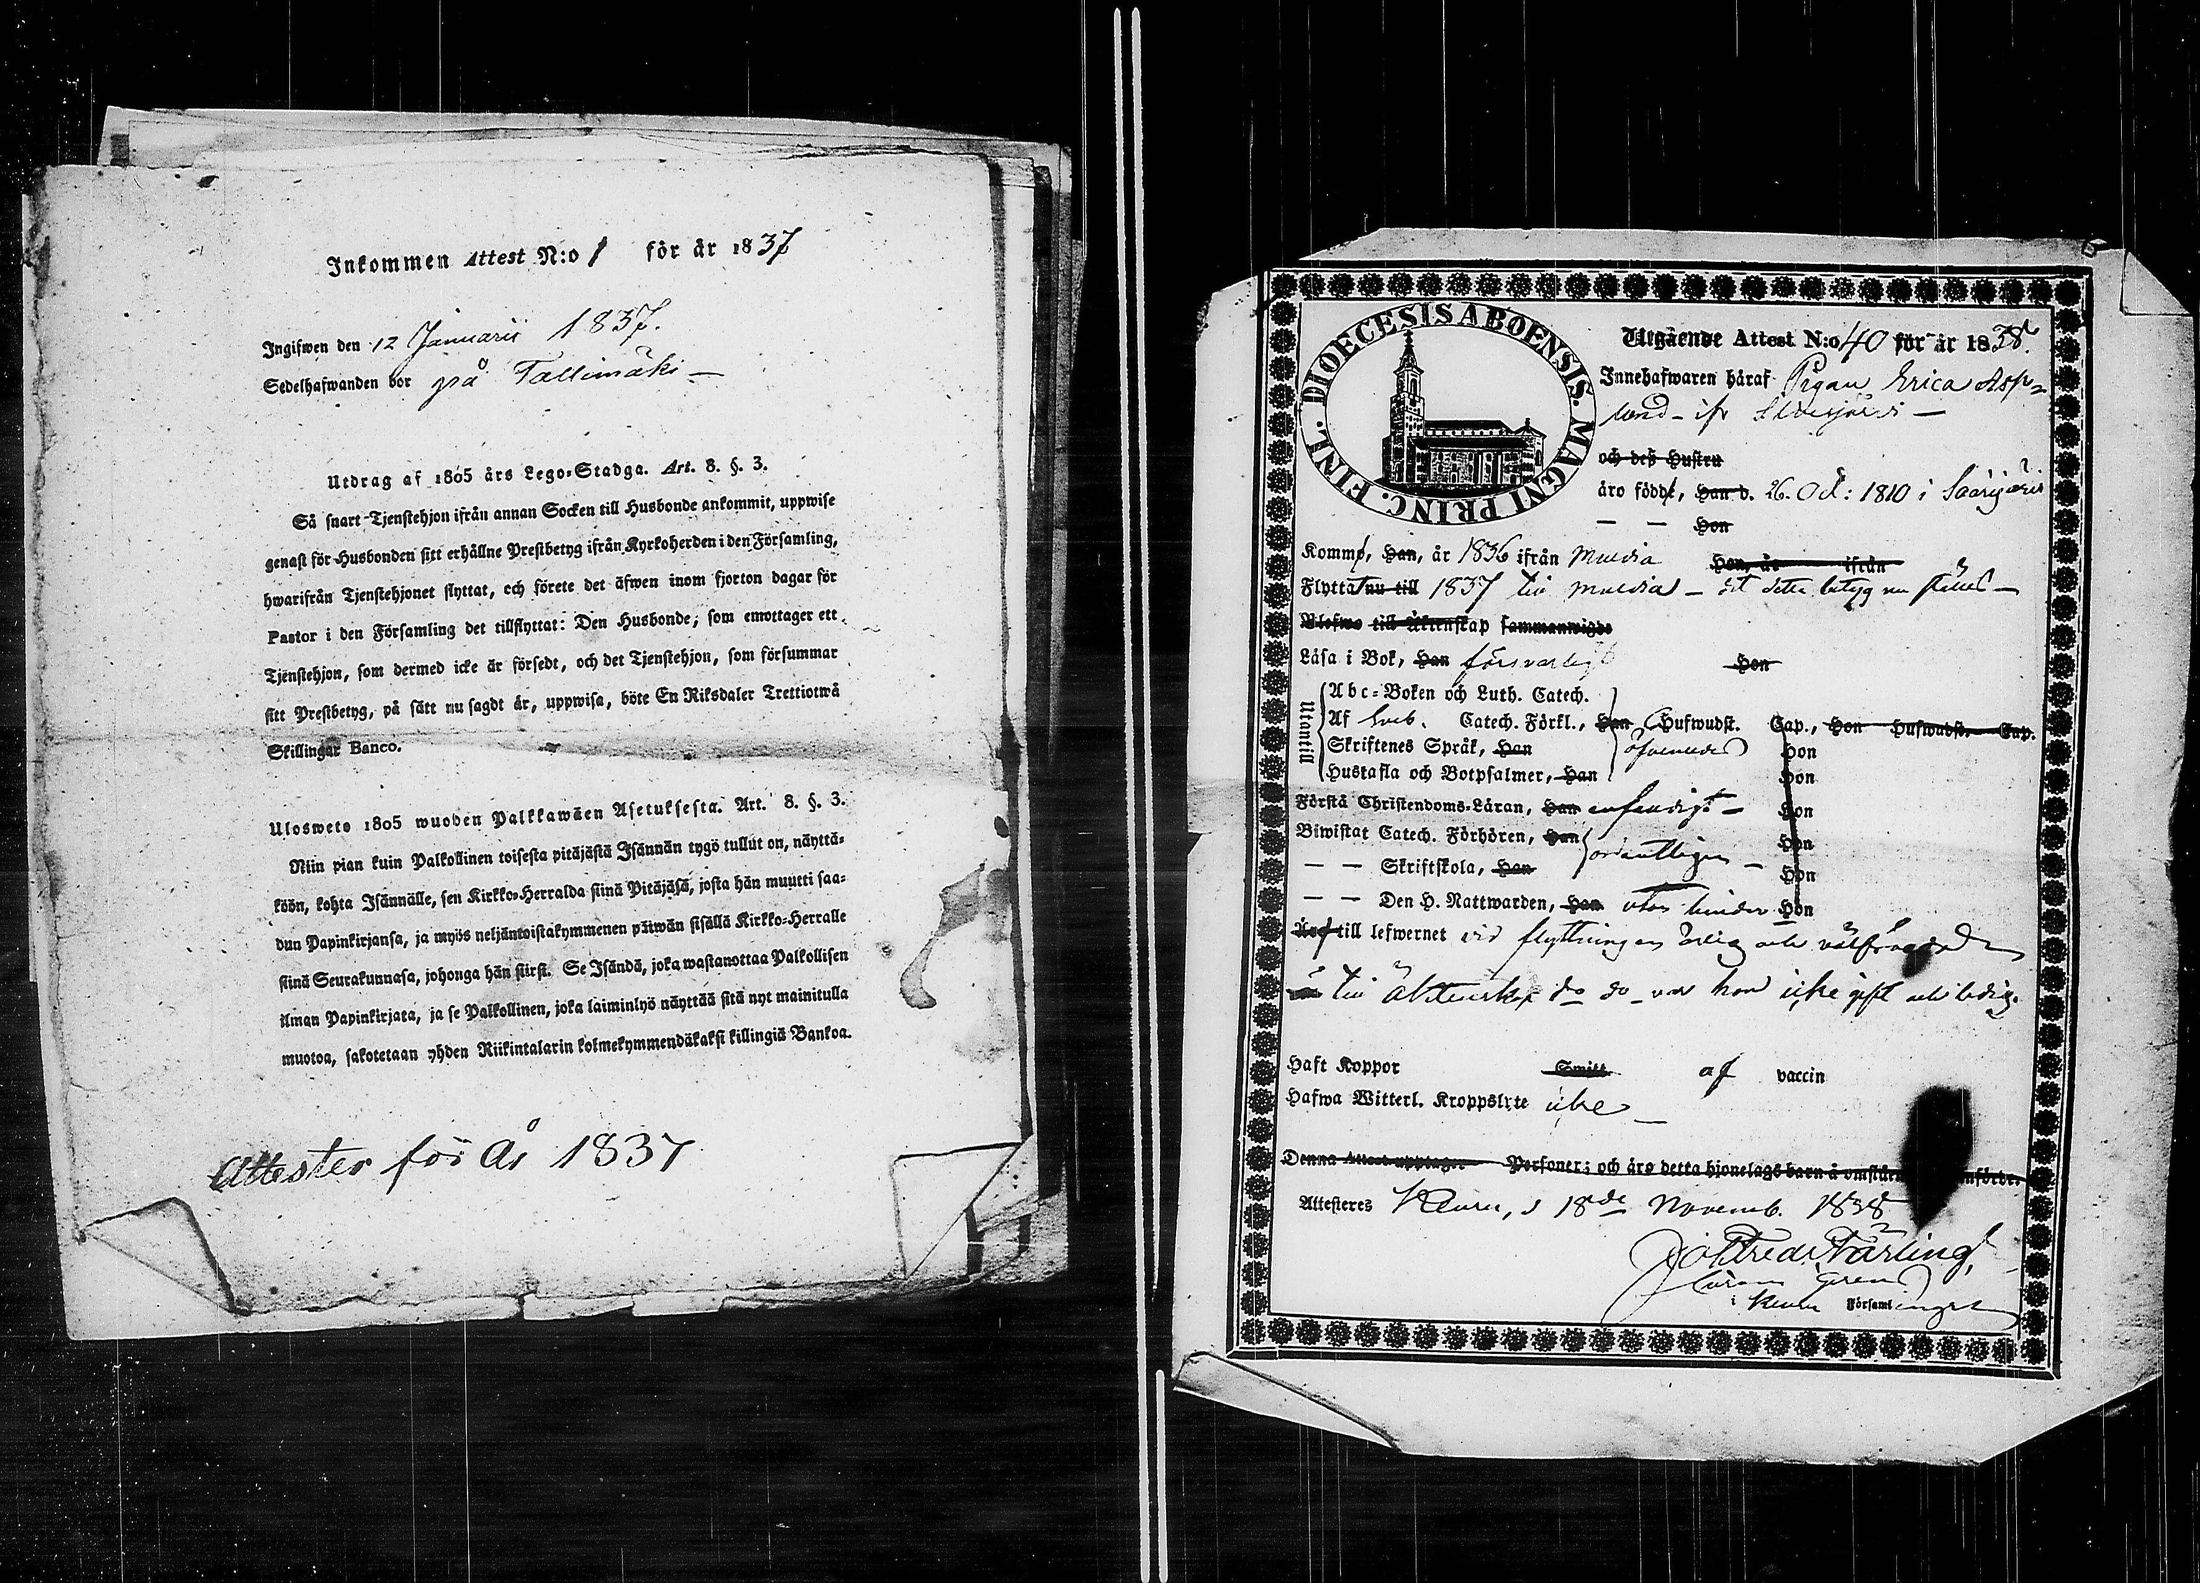 Inkommen Attest N:o 1 för år 1837
Ingifwen den 12 Januarii 1837.
Sedelhafwanden bor på Tallimäki —
Utdrag af 1805 års Lego-Stadga. Art. 8. §. 3.
Så snart Tjenstehjon ifrån annan Socken till Husbonde ankommit, uppwise
genast för Husbonden sitt erhållne Prestbetyg ifrån Kyrkoherden i den Församling,
hwarifrån Tjenstehjonet flyttat, och förete det äfwen inom fjorton dagar för
Pastor i den Församling det tillflyttat: Den Husbonde, som emottager ett
Tjenstehjon, som dermed icke är försedt, och det Tjenstehjon, som försummar
sitt Prestbetyg, på sätt nu sagdt är, uppwisa, böte En Riksdaler Trettiotwå
Skillingar Banco.
Ulosweto 1805 wuoden Palkkawäen Asetuksesta. Art. 8. §. 3.
Niin pian kuin Palkollinen toisesta pitäjästä Isännän tygö tullut on, näyttä-
köön, kohta Isännälle, sen Kirkko-Herralda siinä Pitäjäsä, josta hän muutti saa-
dun Papinkirjansa, ja myös neljäntoistakymmenen päiwän sisällä Kirkko-Herralle
siinä Seurakunnasa, johonga hän siirsi. Se Isändä, joka wastanottaa Palkollisen
ilman Papinkirjata, ja se Palkollinen, joka laiminlyö näyttää sitä nyt mainitulla
muotoa, sakotetaan yhden Riikintalarin kolmekymmendäkaksi killingiä Bankoa.
Attester för År 1837
DIOECESIS ABOENSIS. MAGNI PRINC. FINL.
Utgående Attest N:o 40 för år 1838.
Innehafwaren häraf Pigan Erica Asp-
lund – ifr
och deß Hustru
äro födde, Han d. 26. Oct: 1810 i Saarijärvi
— — Hon
Komme, Han, år 1836 ifrån Muldia Hon, år ifrån
Flyttat nu till 1837 till Muldia – dit detta betyg nu ställes –
Blefwo till Äktenskap sammanwigde
Läsa i Bok, Han försvarligt Hon
Utantill
Abc-Boken och Luth. Catech.
Af Sveb. Catech. Förkl., Han Hufwudst. Cap., Hon Hufwudst. Cap.
Skriftenes Språk, Han Hon
Hustafla och Botpsalmer, Han Hon
Förstå Christendoms-Läran, Han enfaldigt – Hon
Biwistat Catech. Förhören, Han ordentligen – Hon
— — Skriftskola, Han Hon
— — Den H. Nattwarden, Han utan hinder Hon
Äro till lefwernet vid flyttningen ärlig och välfrägdad
till Äktenskap do do – var hon icke gift och ledig.
Haft Koppor Smitt af vaccin
Hafwa Witterl. Kroppslyte icke –
Denna Attest upptager Personer; och äro detta hjonelags barn å omstående
Attesteres Keuru, d 18de Novemb. 1838
Gottfried Färling,
i Keuru Församlingar